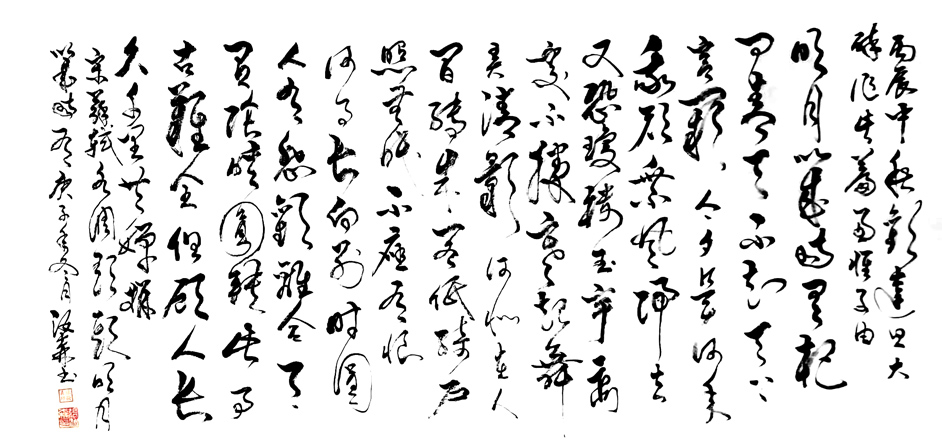 丙辰中秋歡達旦大
醉作此篇兼懷子由
明月幾時有把
問青天不知天上
宮闕今夕是何年
我欲乘風歸去
又恐瓊樓玉宇高
處不勝寒起舞
弄清影何似在人
間轉朱閣低綺戶
照無眠不應有恨
何事長向別時圓
人有悲歡離合月
有陰晴圓缺此事
古難全但願人長
久千里共嬋娟
宋蘇軾水調歌頭明月
幾時有庚子年冬月書